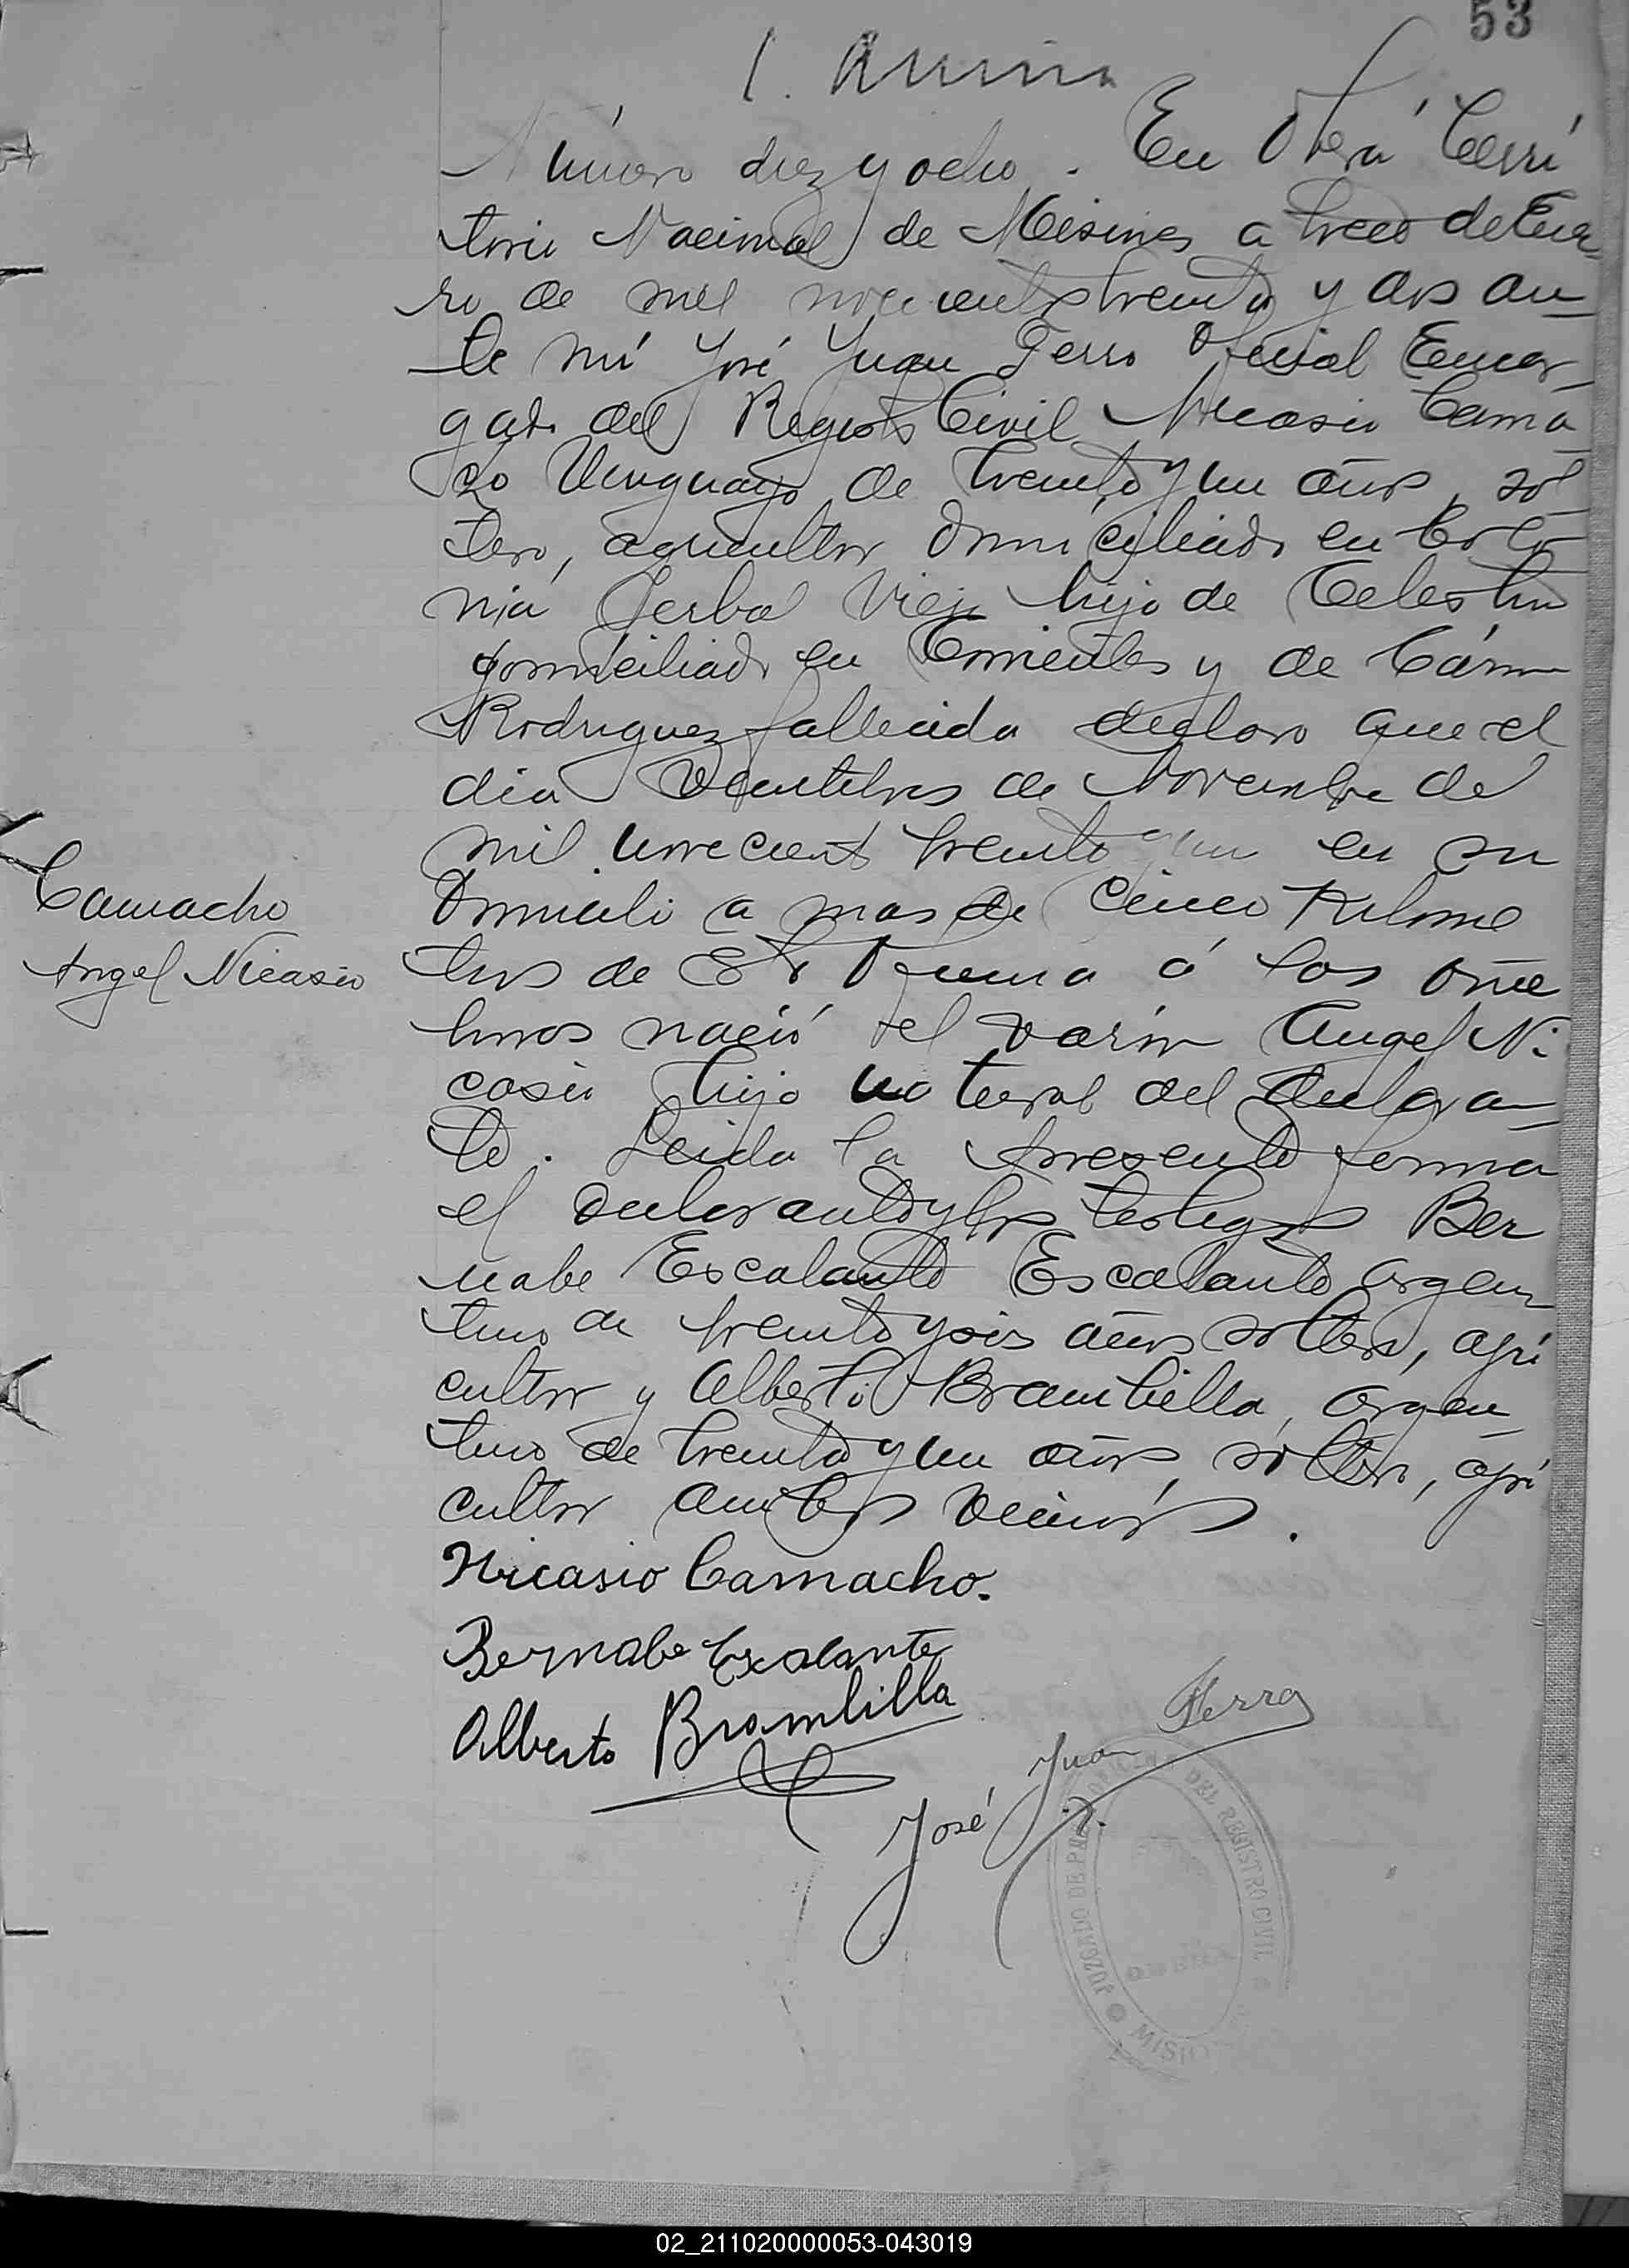 53
Número diez y ocho. En Oberá Terri
torio Nacional de Misiones a trece de Ene
ro de mil novecientos treinta y dos an
te mí José Juan Ferro Oficial Encar
gado del Registro Civil Nicasio Cama
cho Uruguayo de treinta y un años, sol
tero, agricultor domiciliado en Colo
nia Yerbal Viejo hijo de Celestino
domiciliado en Corrientes y de Carmen
Rodriguez fallecida declaro que el
dia veintitres de Noviembre de
mil novecientos treinta y un en su
domicilio a mas de cinco Kilome
tros de Esta Oficina á las once
horas nació el varón Angel Ni
casio hijo natural del declaran
te. Leida la presente firma
el declarante y los testigos Ber
nabe Escalante Escalante argen
tino de treinta y seis años soltero, agri
cultor y Alberto Brambilla, argen
tino de treinta y un años, soltero, agri
cultor ambos vecinos.
Camacho
Angel Nicasio
Nicasio Camacho.
Bernabe Escalante
Alberto Brambilla
José Juan Ferro
JUZGADO DE PAZ DEL REGISTRO CIVIL
02_211020000053-043019